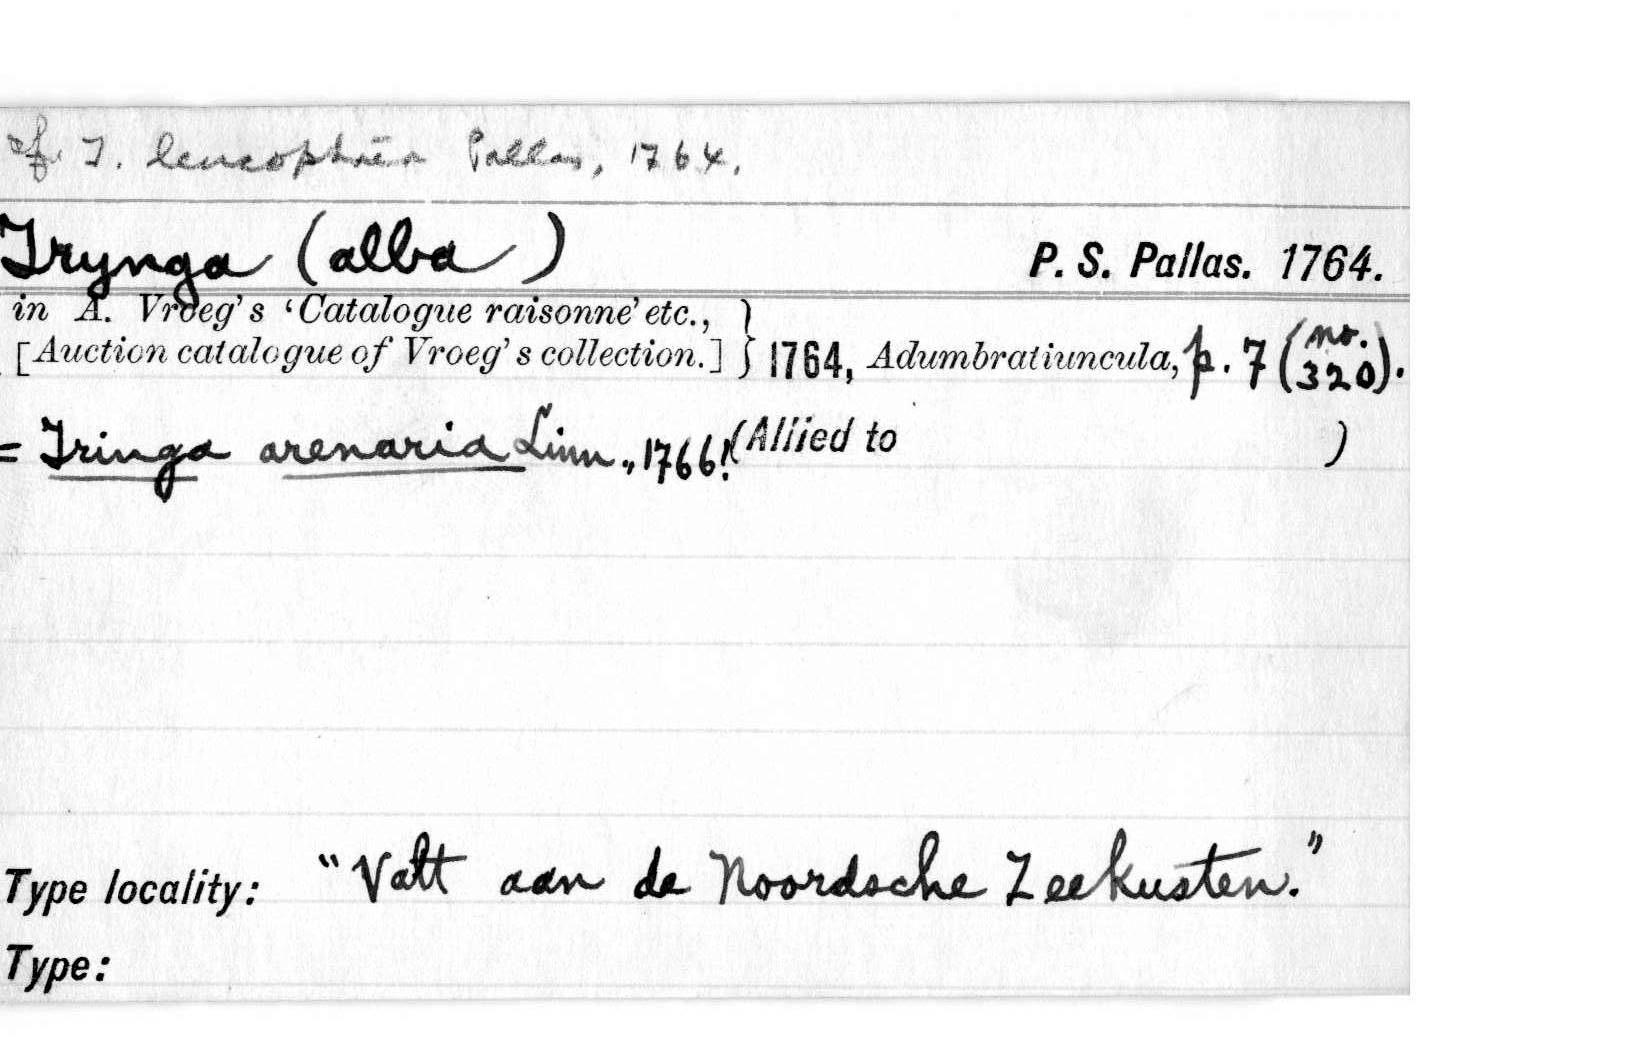 cf. T. leucophaea Pallas, 1764.
Trynga (alba) P. S. Pallas. 1764.
in A. Vroeg's 'Catalogue raisonne' etc., }
[Auction catalogue of Vroeg's collection.] } 1764, Adumbratiuncula, p. 7 (no. 320).
= Tringa arenaria Linn., 1766! (Allied to )
Type locality: "Valt aan de Noordsche Zeekusten."
Type: